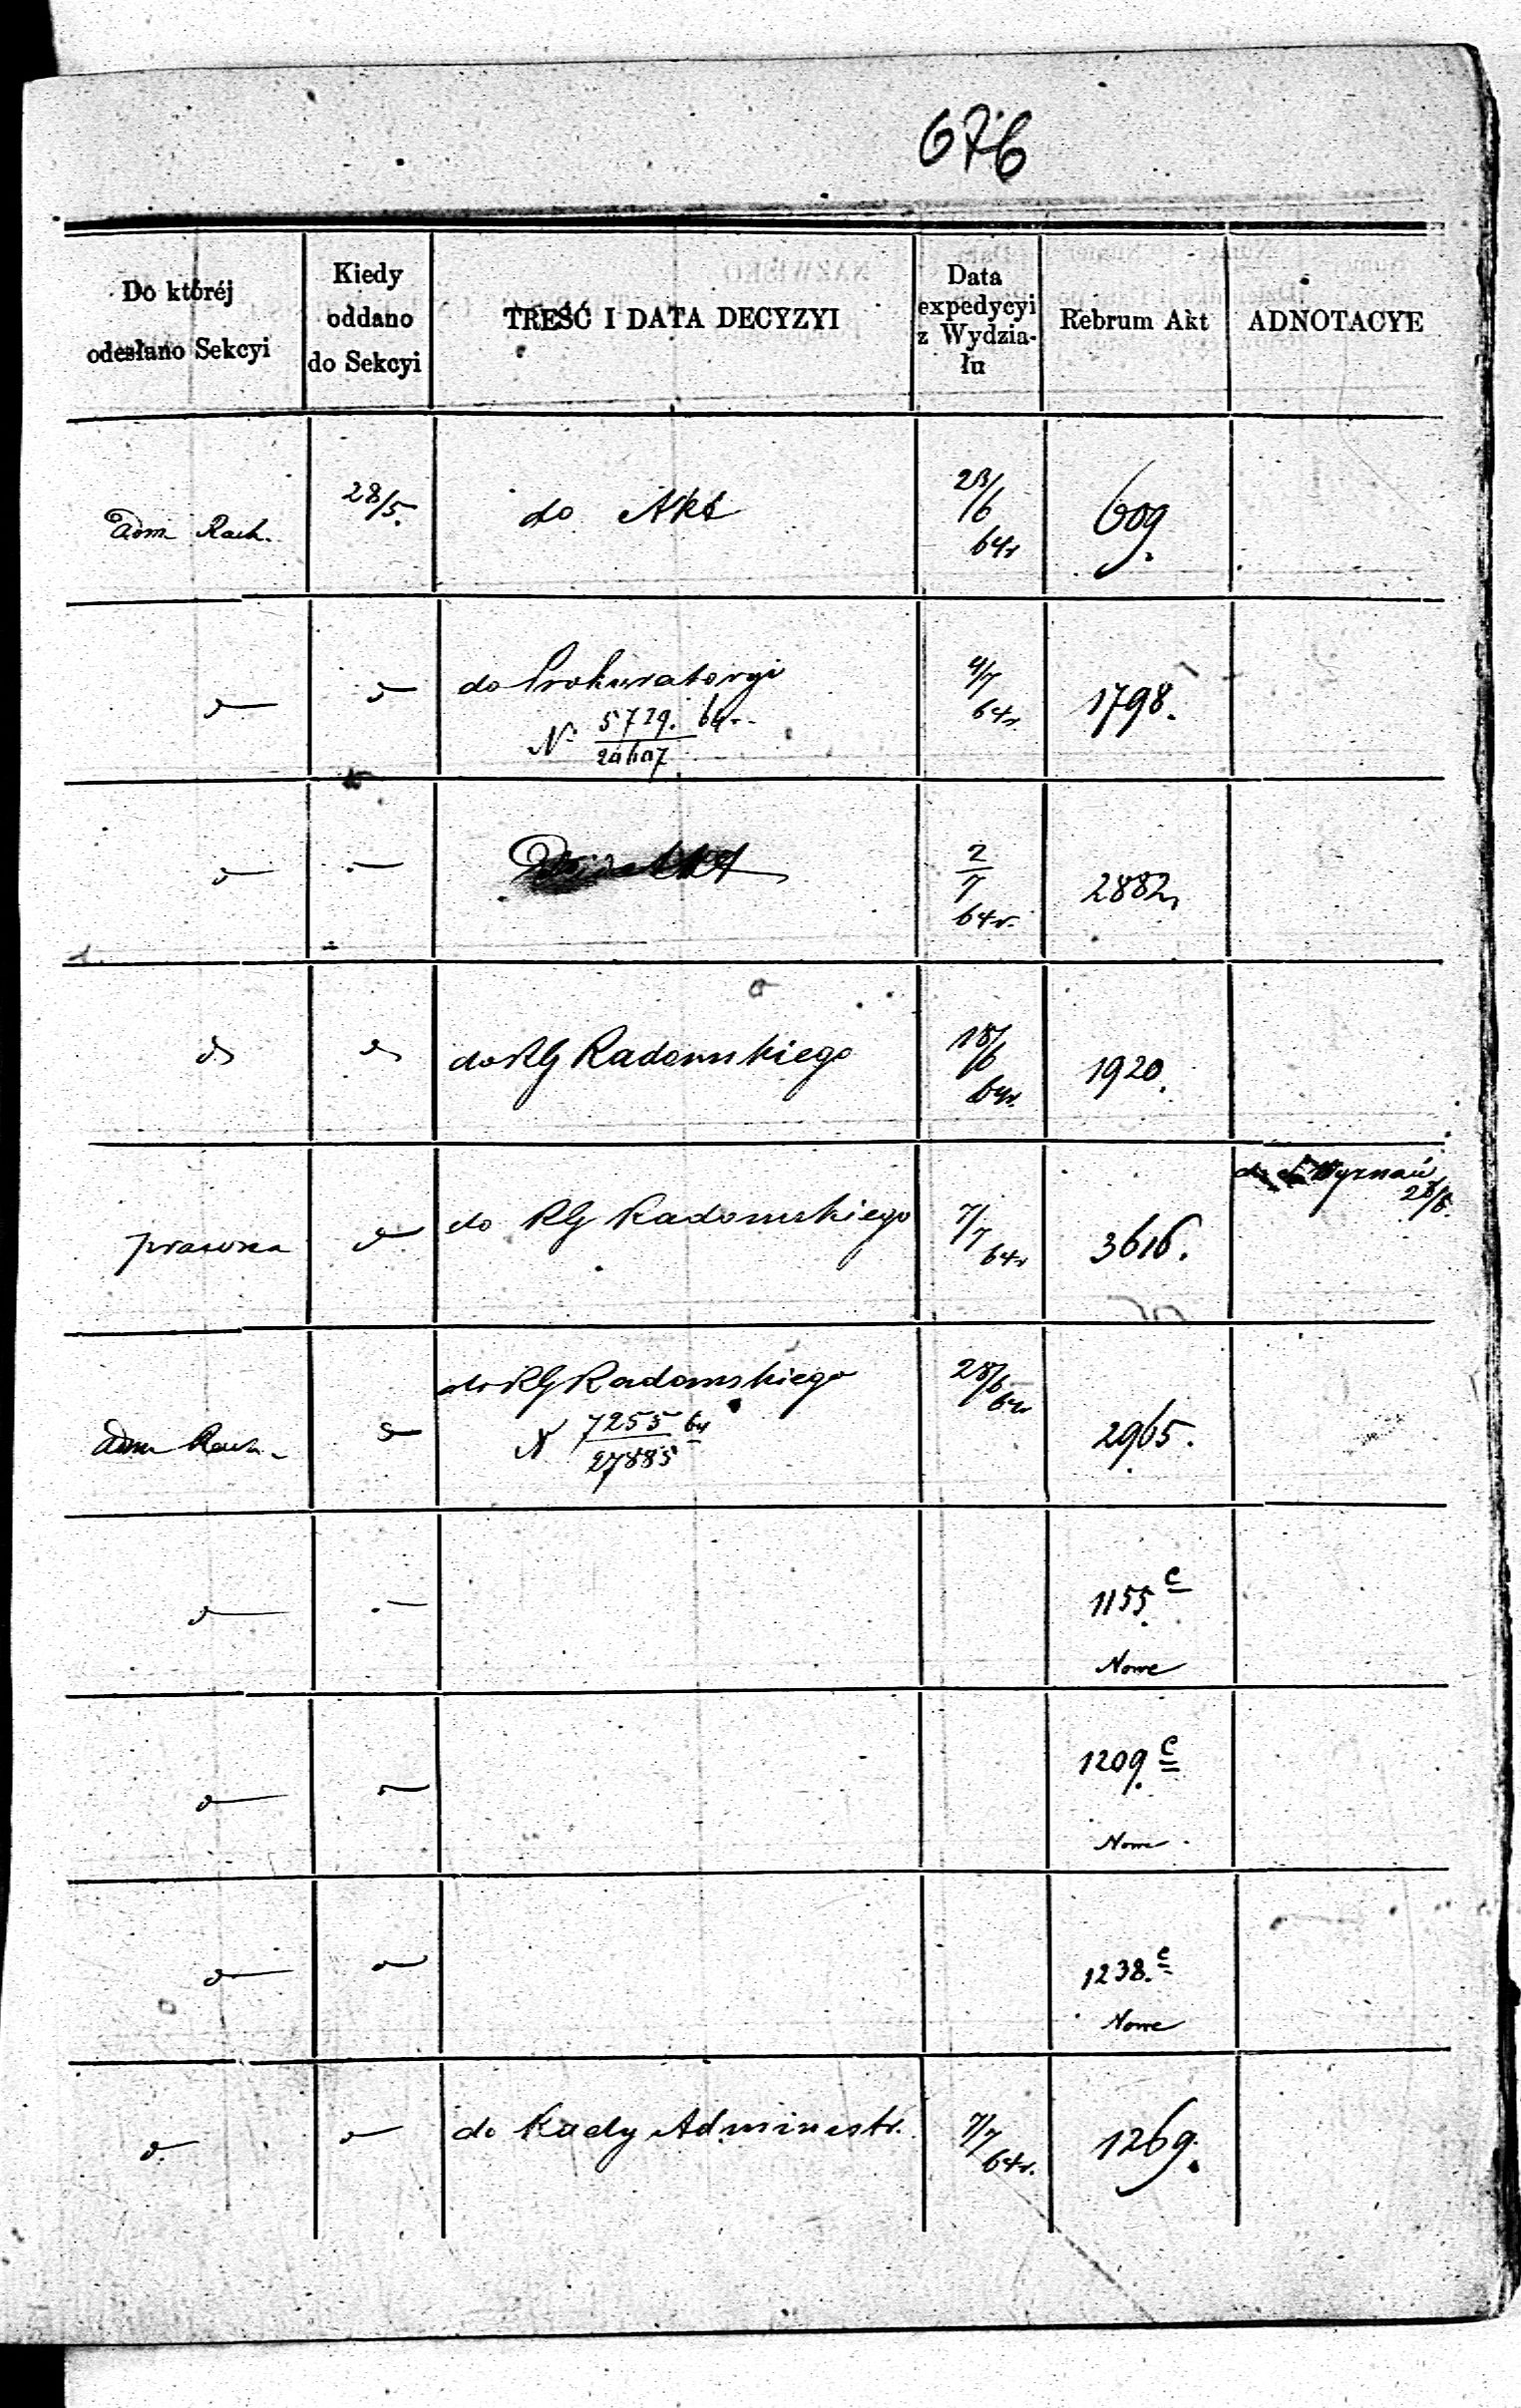 676
Do któréj
odesłano Sekcyi
Kiedy
oddano
do Sekcyi
TREŚĆ I DATA DECYZYI
Data
expedycyi
z Wydzia-
łu
Rebrum Akt
ADNOTACYE
Adm Rach.
28/5.
do Akt
23/6
64r
609.
do Prokuratoryi
N 5729. 64
4/7
64r.
1798.
2
7
64r.
2882
do RG Radomskiego
18/6
64r.
1920.
prawna
do RG Radomskiego
7/7
64r
3616.
Wyznań
Adm Rach.
do RG Radomskiego
N 7255 64
27885
28/6
64r
2965.
1155 c
Nowe
1209 c
Nowe
1238. c
Nowe
do Rady Administr.
7/7
64r.
1269.